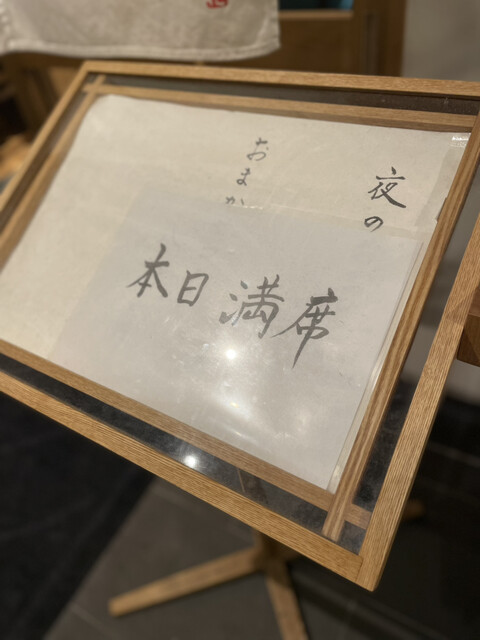 夜の
おまか
本日満席